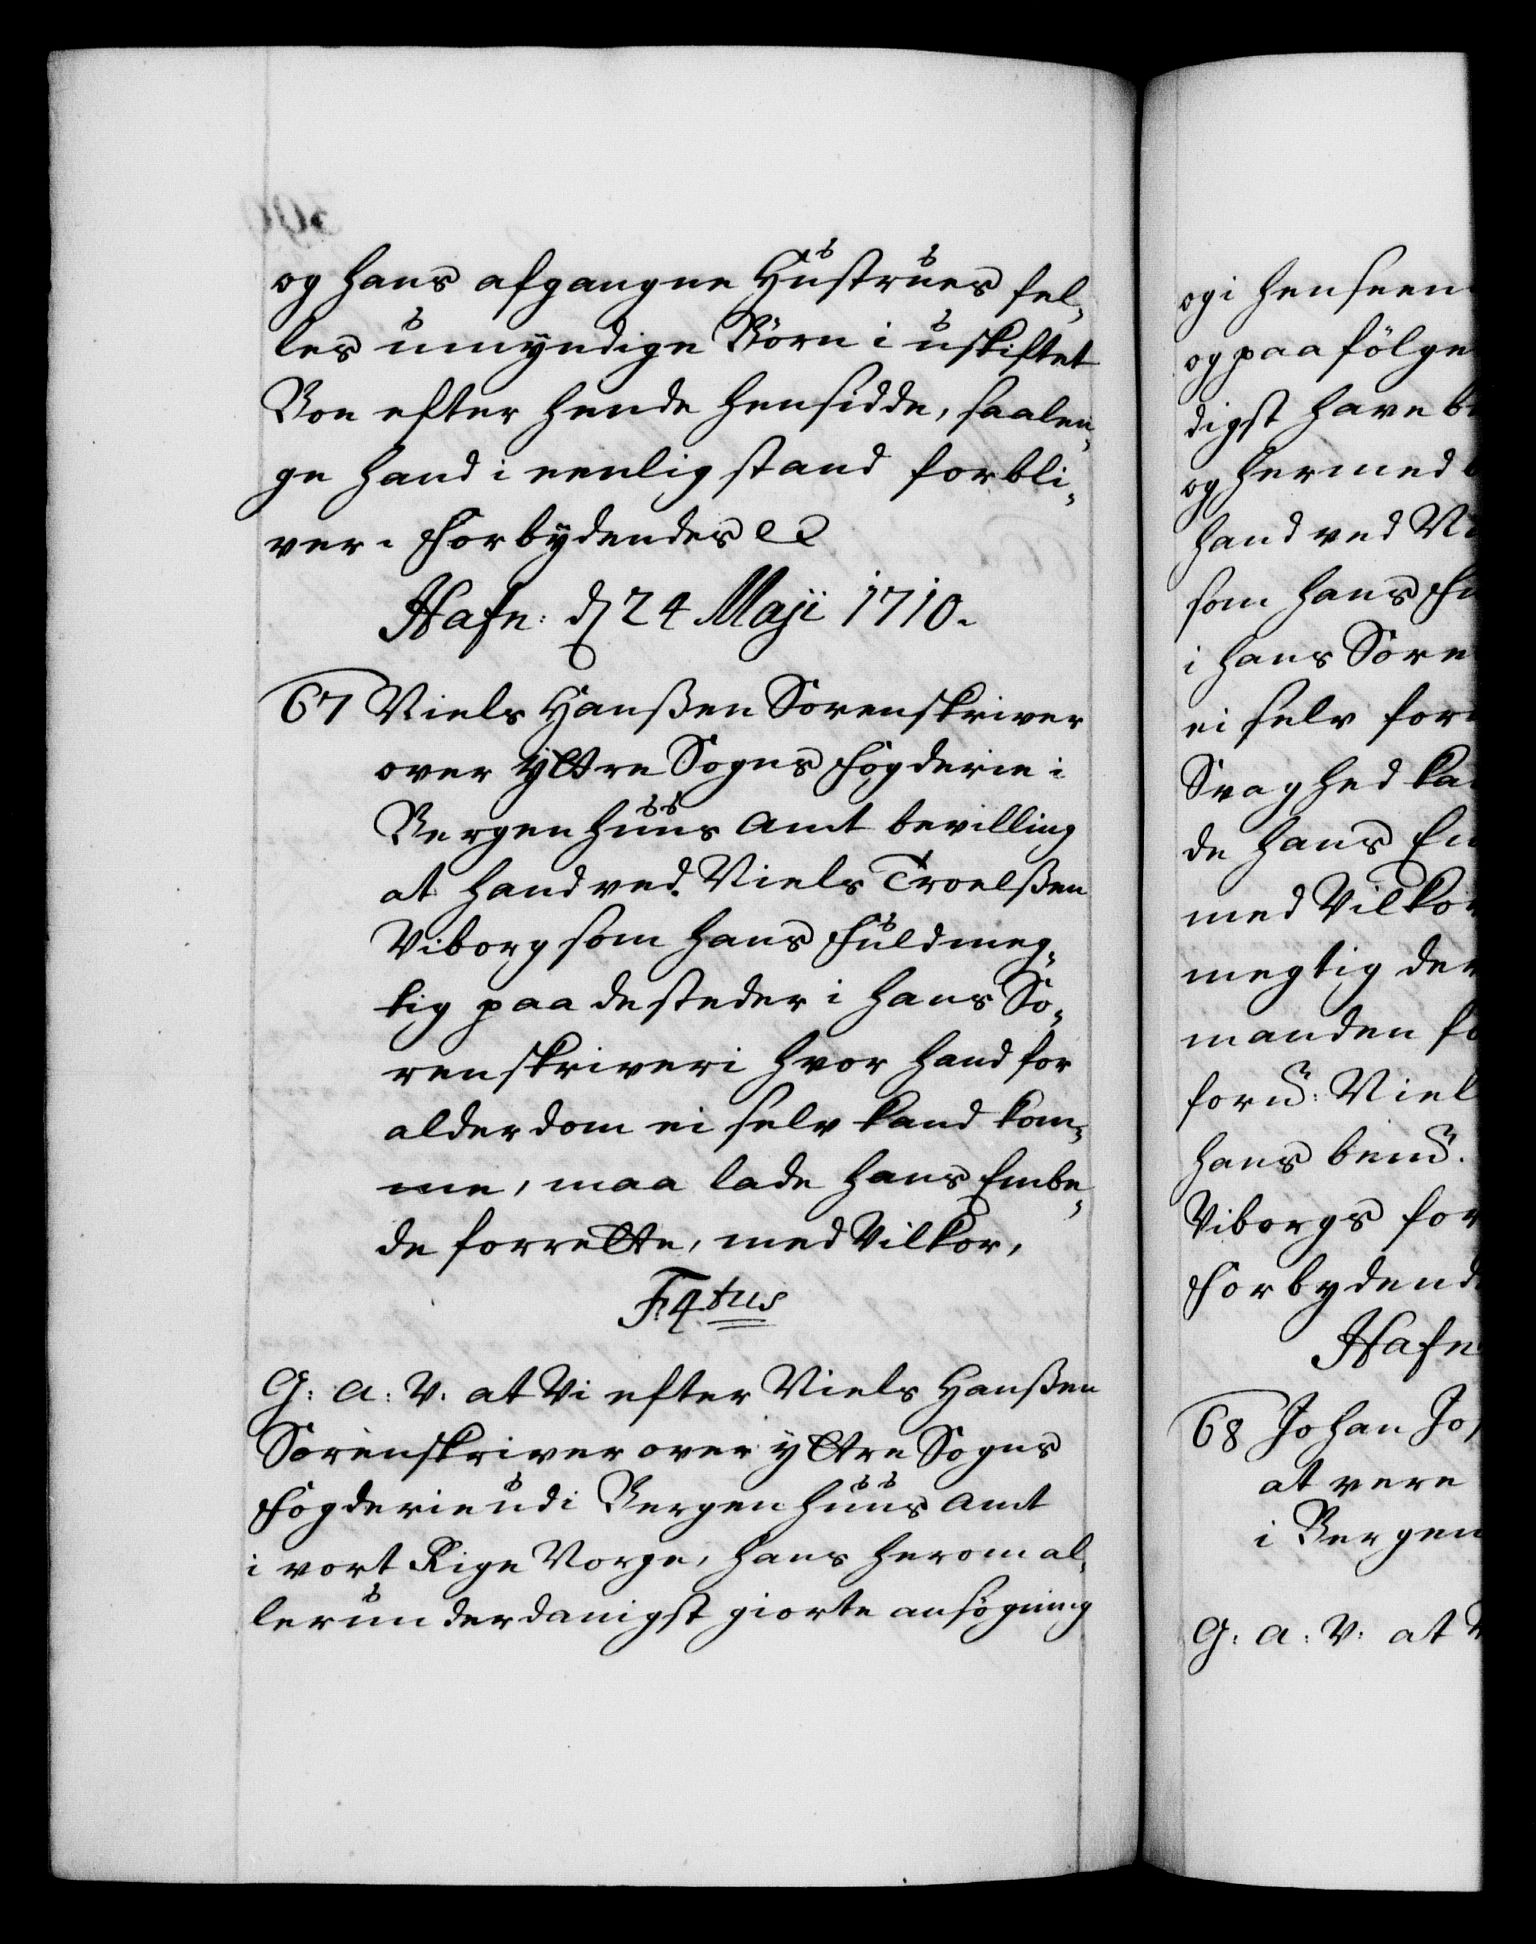 og hans afgangne Hustrues fel-
les umyndige Børn i uskiftet
Boe efter hende hensidde, saalen-
ge hand i eenlig stand forbli-
ver. Forbydendes etc
Hafn: d 24 Maji 1710.
67 Niels Hanßen Sorenskriver
over ÿttre Sogns Fogderie i
Bergenhuus Amt bevilling
at hand ved Niels Troelßen
Viborg som hans Fuldmeg-
tig paa de steder i hans So-
renskriveri hvor hand for
alderdom ei selv kand kom-
me, maa lade hans Embe-
de forrette, med Vilkor,
F. 4tus
G: A: V: at Vi efter Niels Hanßen
Sorenskriver over ÿttre Sogns
Fogderie udi Bergenhuus Amt
i vort Rige Norge, hans herom al-
lerunderdanigst giorte ansøgning
og i henseen
og paa følge
digst have be
og hermed b
hand ved Ni
som hans Fu
i hans Soren
ei selv forr
Svaghed ka
de hans Em
med Vilkor
megtig der
manden fo
forn: Niel
hans ben.
Viborgs for
Forbydend
Hafn
68 Johan Jo
at vere
i Bergen
G: A: V: at V